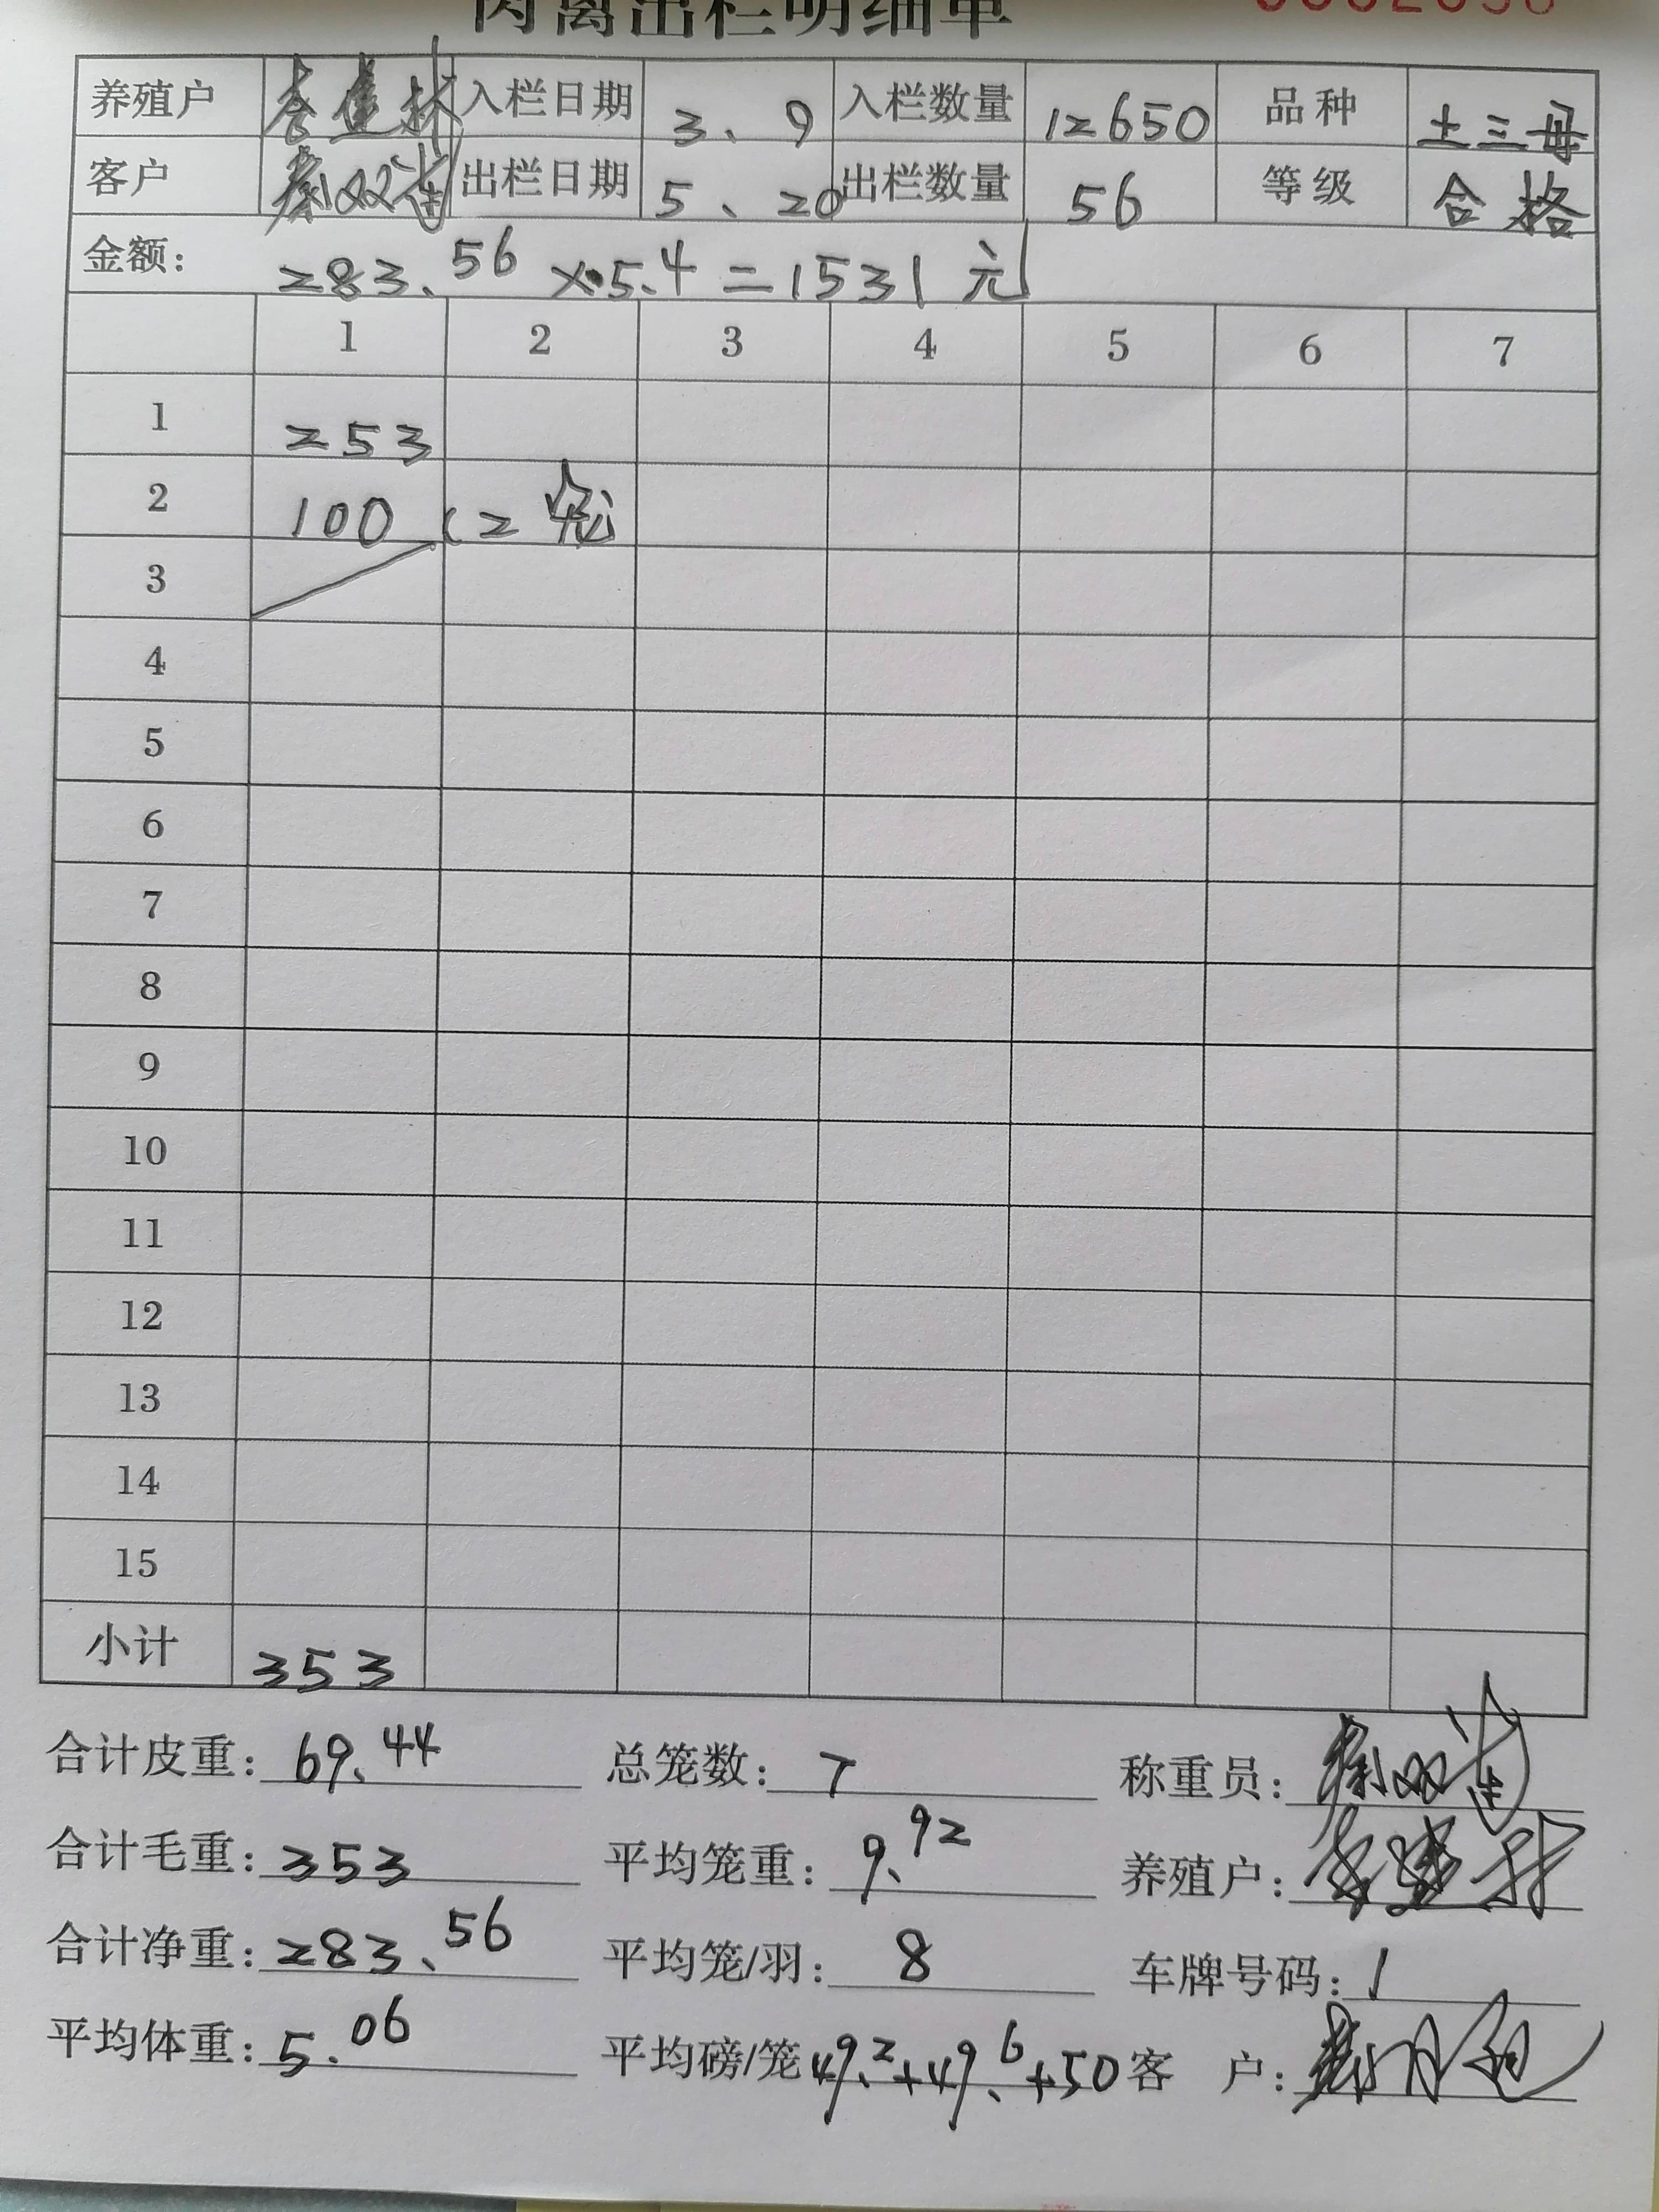 肉禽出栏明细单
养殖户 李建林 入栏日期 3、9 入栏数量 12650 品种 土三母
客户 秦双逍 出栏日期 5、20 出栏数量 56 等级 合格
金额: 283.56 ×5.4=1531元
1 2 3 4 5 6 7
1 253
2 100 (2笼
3
4
5
6
7
8
9
10
11
12
13
14
15
小计 353
合计皮重: 69.44 总笼数: 7 称重员:
合计毛重: 353 平均笼重: 9.92 养殖户:
合计净重: 283.56 平均笼/羽: 8 车牌号码: 1
平均体重: 5.06 平均磅/笼 49.2+49.6+50 客 户: